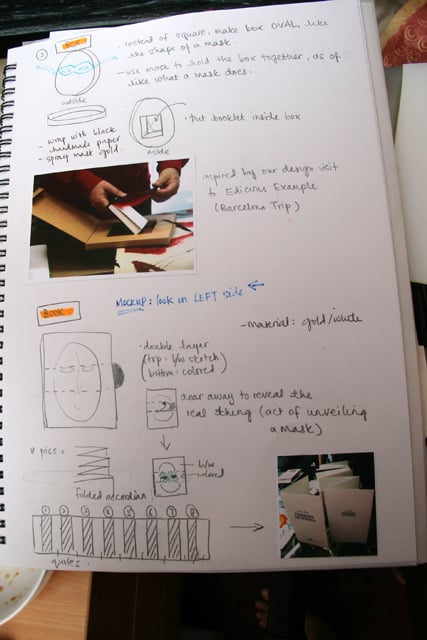 ② Box
· instead of square, make box OVAL, like
the shape of a mask.
- use mask to hold the box together, as of
like what a mask does.
outside
- wrap with black
handmade paper
- spray mask gold.
inside
· Put booklet inside box.
inspired by our design visit
to Edicions Example
(Barcelona Trip)
Mockup: look on LEFT side
Book
- material: gold/white
· double layer
(top: b/w sketch)
(bottom: colored)
tear away to reveal the
real thing (act of unveiling
a mask)
8 pics =
b/w
colored
folded accordian
① ② ③ ④ ⑤ ⑥ ⑦ ⑧
quotes.